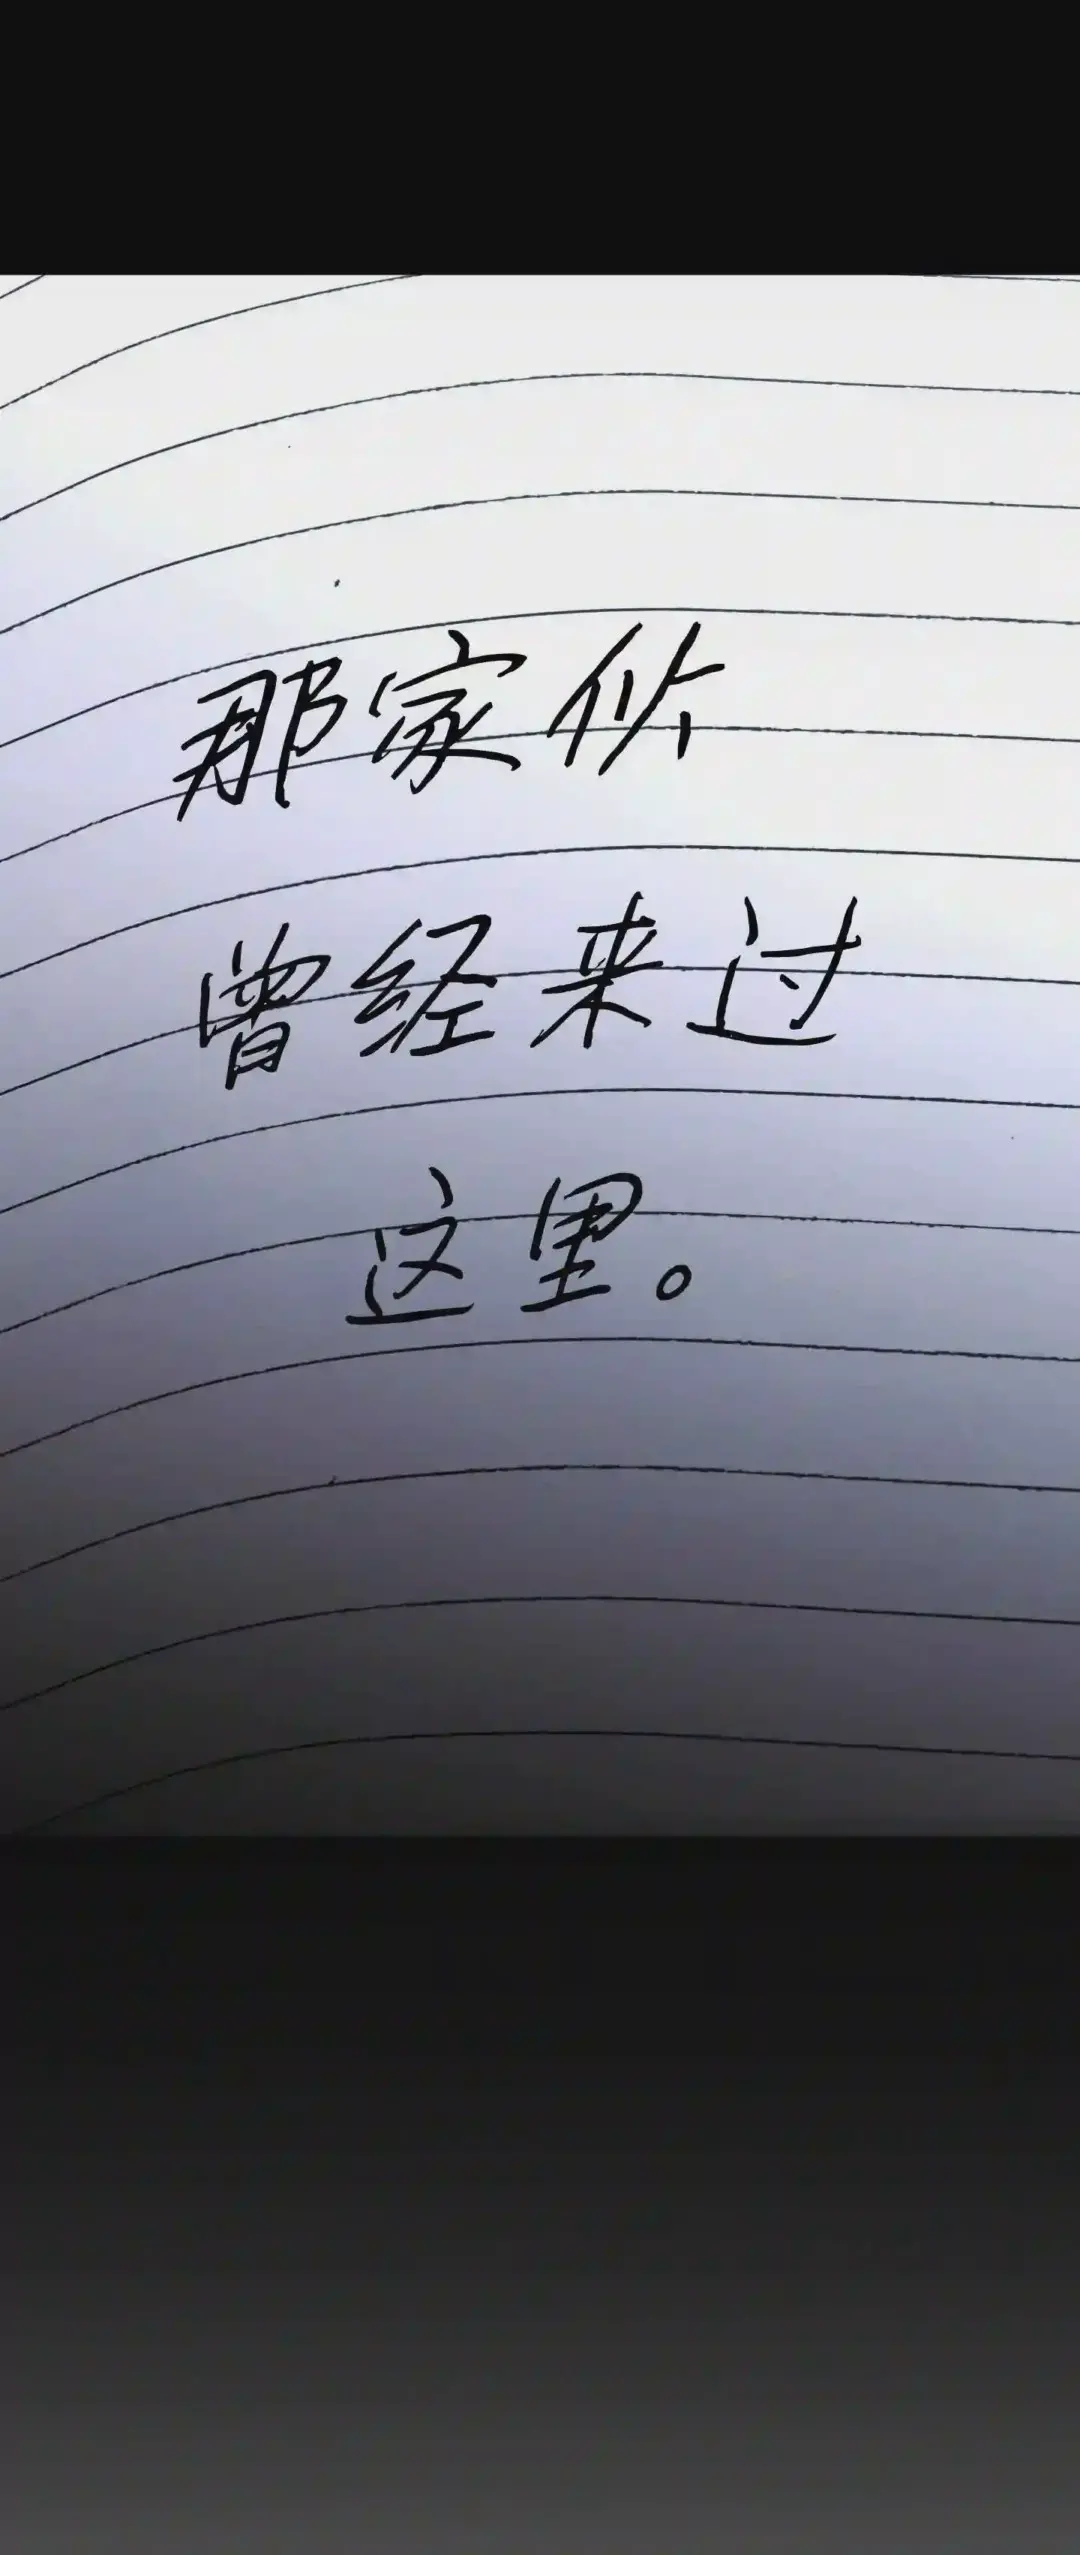 那家伙
曾经来过
这里。